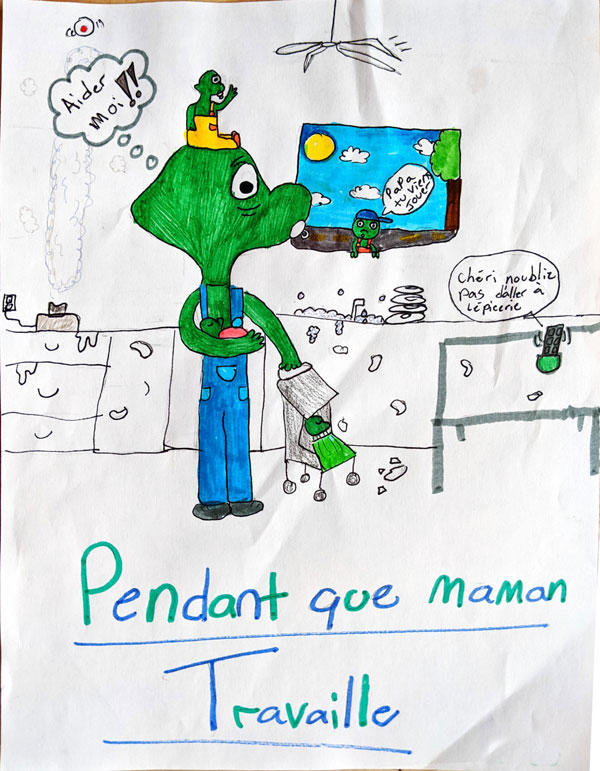 Aider
moi!!
Papa
tu viens
jouer
chéri noublie
pas d'aller à
L'épicerie
Pendant que maman
Travaille